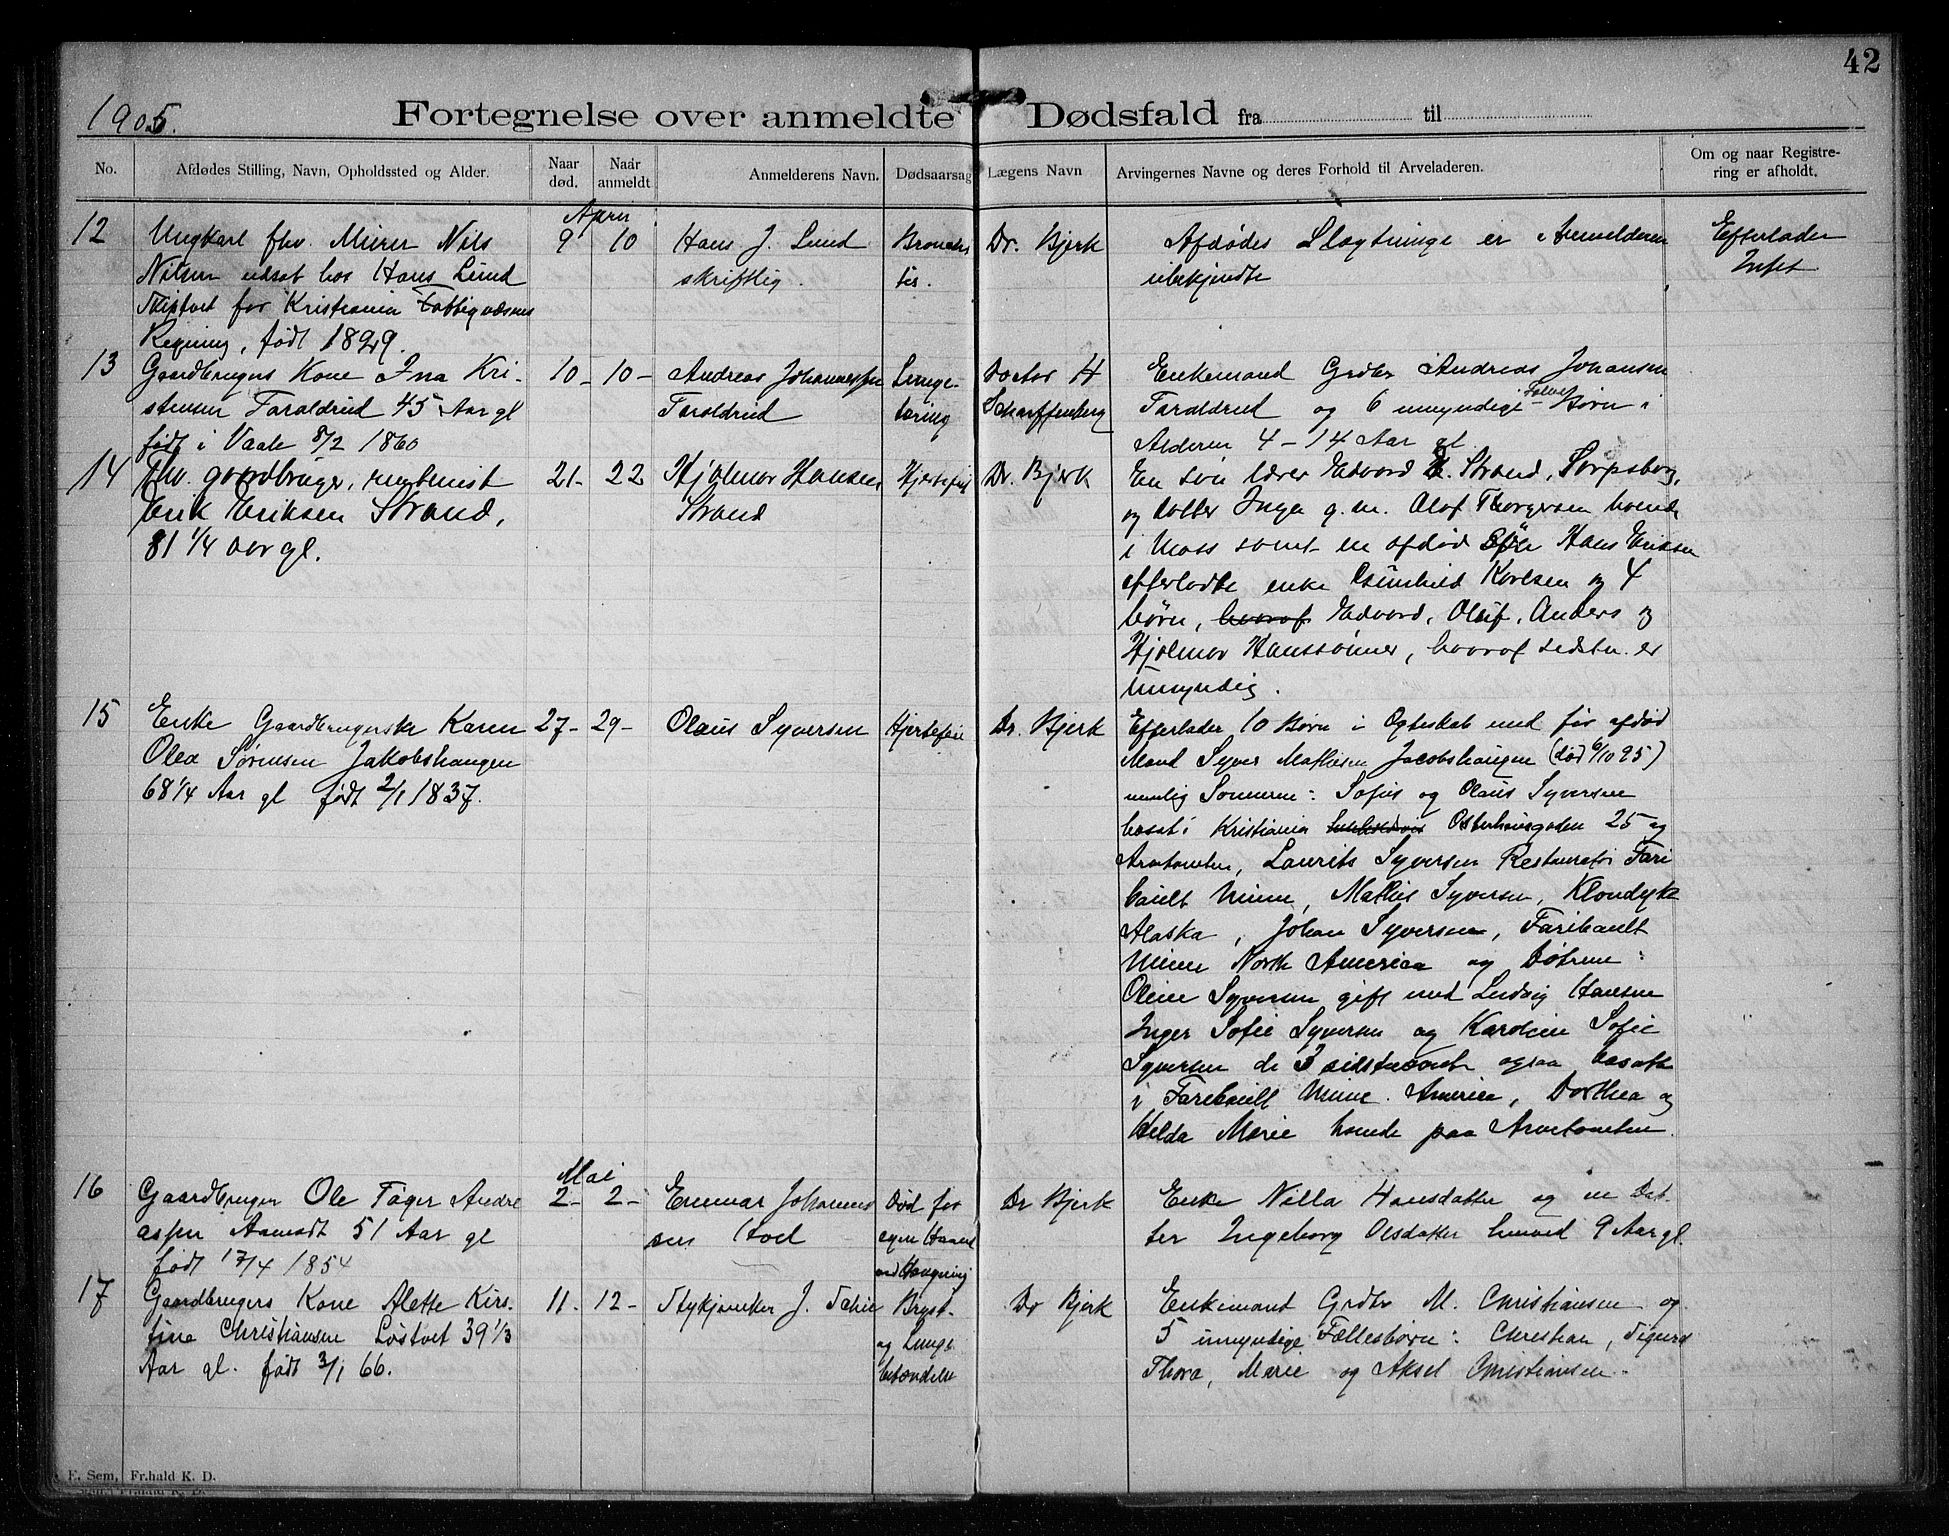 42
1905.
Fortegnelse over anmeldte Dødsfald fra til
No.
Afdødes Stilling, Navn, Opholdssted og Alder.
Naar død.
Naar anmeldt
Anmelderens Navn.
Dødsaarsag
Lægens Navn
Arvingernes Navne og deres Forhold til Arveladeren.
Om og naar Registre-
ring er afholdt.
12
Ungkarl fhv. Murer Nils
Nilsen udsat hos Hans Lund
Skiptvet for Kristiania Fattigvæsens
Regning, født 1829.
April
9 10
Hans J. Lund
skriftlig.
Bronchi-
tis.
Dr. Bjerk
Afdødes Slægtninge er Anmelderen
ubekjendte
Efterlader
Intet
13
Gaardbrugers Kone Ina Kri-
stensen Taraldrud 45 Aar gl
født i Vaale 8/2 1860
10- 10-
Andreas Johannessen
Taraldrud
Lunge-
tæring
Doctor H
Scharffenberg
Enkemand Grdbr Andreas Johansen
Taraldrud og 6 umyndige Børn i
Alderen 4 - 14 Aar gl
14
Fhv. gaardbruger,
Erik Eriksen Strand,
81 1/4 aar gl.
21- 22
Hjalmar Hansen
Strand
Hjertefeil
Dr. Bjerk
En søn lærer Edvard E. Strand, Sarpsborg,
og datter Inga g. m. Olaf Thorgersen boende
i Moss samt en afdød søn Hans Eriksen
efterladte enke Karlsen og 4
børn, hvoraf Edvard, Oluf, Anders og
Hjalmar Hanssønner, hvoraf sidstn. er
umyndig.
15
Enke Gaardbrugerske Karen
Olea Sørensen Jakobshaugen
68 1/4 Aar gl født 2/1 1837.
27- 29-
Olaus Syversen
Hjertefeil
Dr. Bjerk
Efterlader 10 Børn i Egteskab med før afdød
Mand Syver Mathisen Jacobshaugen (død 6/10 95)
nemlig Sønnerne: Sofus og Olaus Syversen
bosat i Kristiania Osterhausgaden 25 og
Arvetomten, Laurits Syversen Restauratør Fari
bault Minn, Mathis Syversen, Klondyke
Alaska, Johan Syversen, Faribault
Minn North America og Døtrene:
Oline Syversen gift med Ludvig Hansen
Inger Sofie Syversen og Karoline Sofie
Syversen de 3 sidstnævnte ogsaa bosatte
i Faribault Minn. America, Dorthea og
Hilda Marie boende paa Arvetomten
16
Gaardbruger Ole Tøger Andre
assen Aamodt 51 Aar gl
født 17/4 1854
Mai
2- 2-
Emmar Johannes
sen
Død for
egen Haand
ved Hængning
Dr Bjerk
Enke Nilla Hansdatter og en Dat-
ter Ingeborg Olsdatter 9 Aar gl.
17
Gaardbrugers Kone Alette Kirs-
tine Christiansen Løstvet 39 1/3
Aar gl. født 3/1 66.
11- 12-
Stykjunker J.
Bryst-
og Lunge
betændelse
Dr Bjerk
Enkemand Grdbr M. Christiansen og
5 umyndige Fællesbørn: Christian, Sigurd
Thora, Marie og Aksel Christiansen.
F. Sem, Fr.hald K. D.